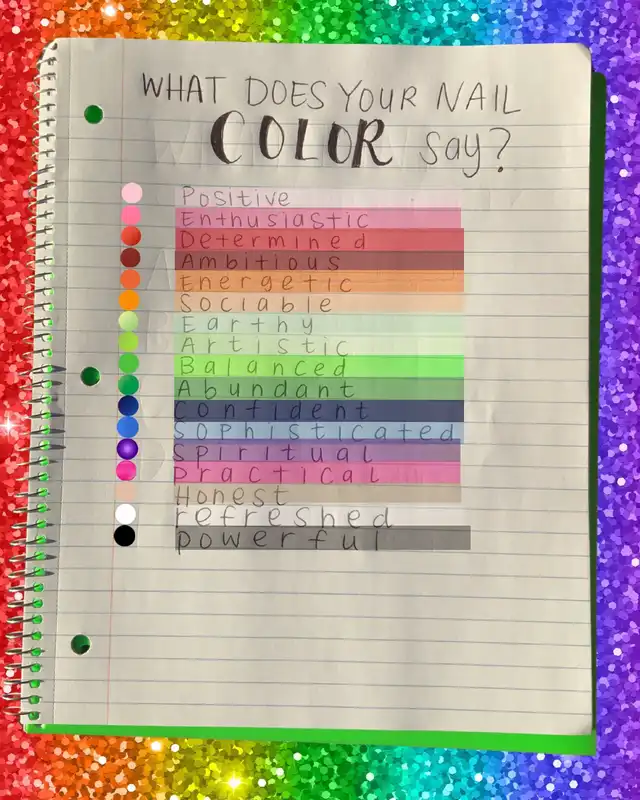 WHAT DOES YOUR NAIL
COLOR say?
Positive
Enthusiastic
Determined
Ambitious
Energetic
Sociable
Earthy
Artistic
Balanced
Abundant
confident
sophisticated
spiritual
practical
Honest
refreshed
powerful